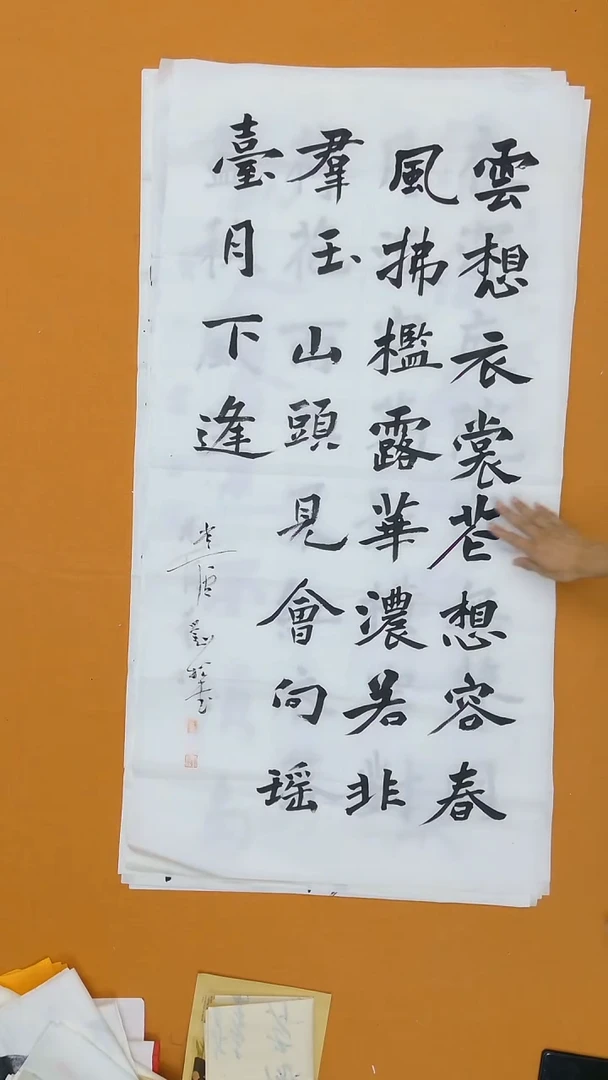 雲想衣裳花想容春
風拂檻露華濃若非
羣玉山頭見會向瑶
臺月下逢